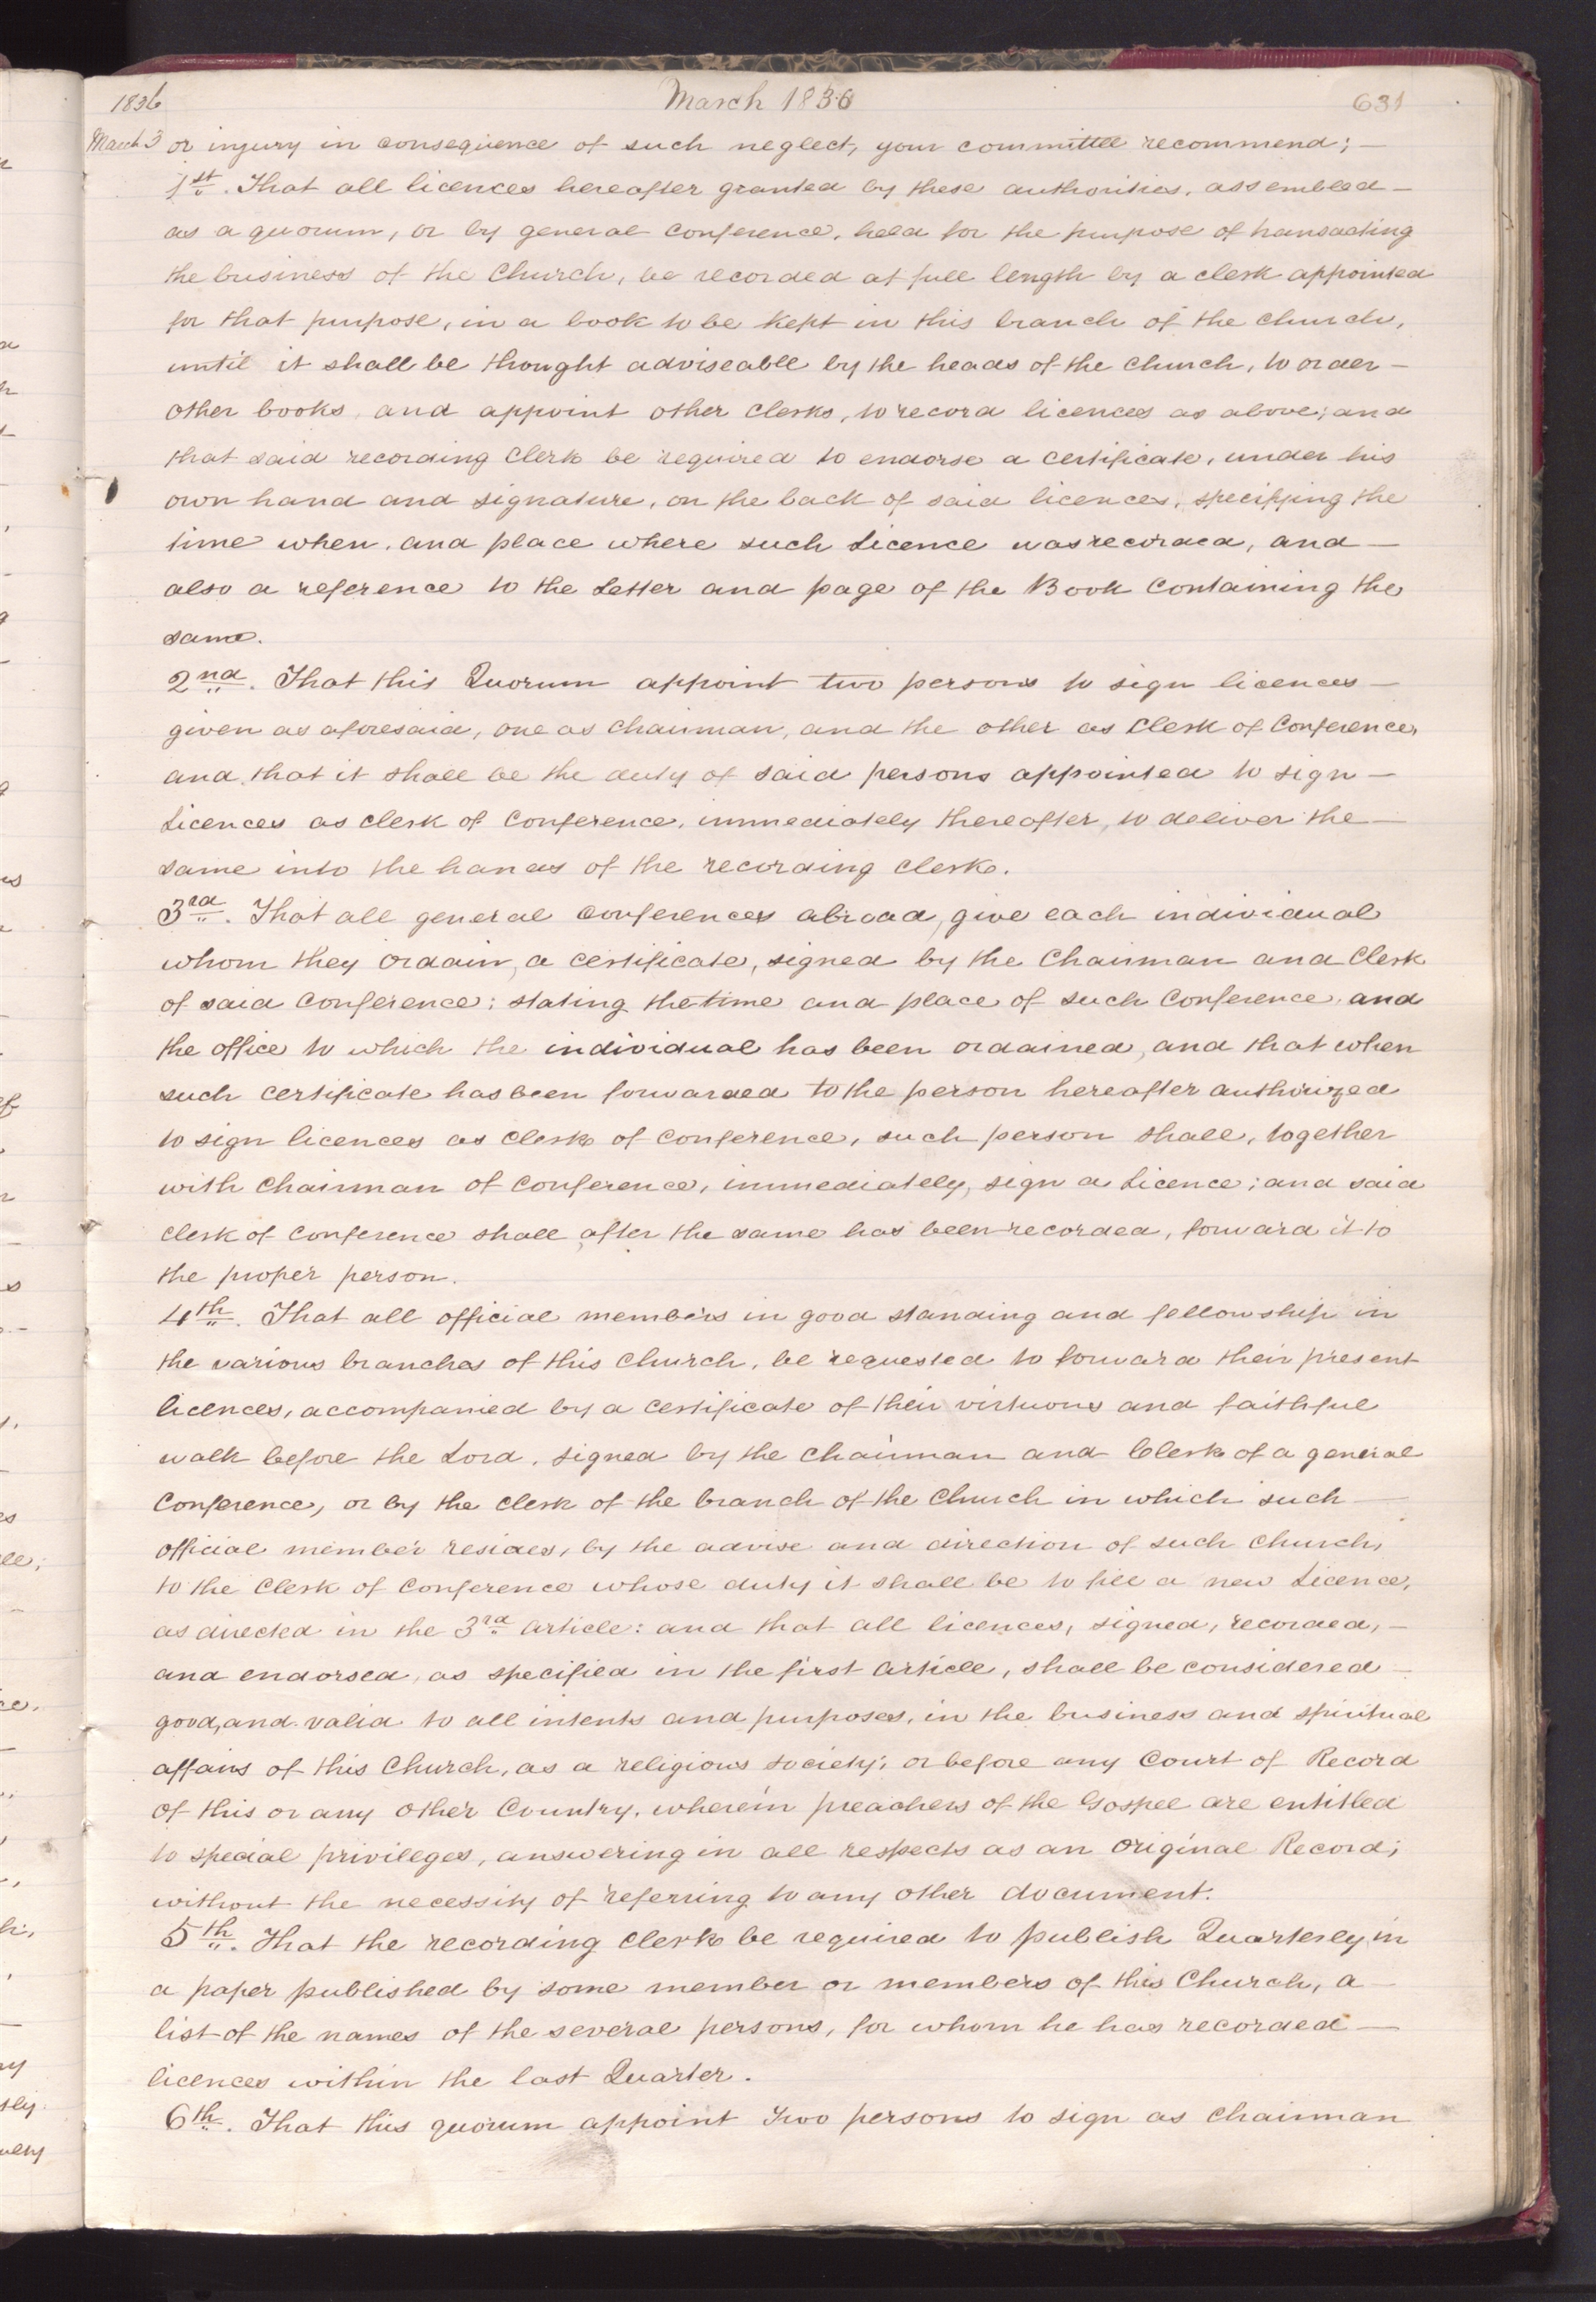 1836 March 1836 631
March 3 or injury in consequence of such neglect, your committee recommend; —
1st. That all licences hereafter granted by these authorities, assembled —
as a quorum, or by general conference, held for the purpose of transacting
the business of the Church, be recorded at full length by a clerk appointed
for that purpose, in a book to be kept in this branch of the church,
until it shall be thought adviseable by the heads of the church, to order —
other books and appoint other clerks, to record licences as above; and
that said recording clerk be required to endorse a certificate, under his
own hand and signature, on the back of said licences, specifying the
time when, and place where such Licence was recorded, and —
also a reference to the Letter and page of the Book containing the
same.
2nd. That this Quorum appoint two persons to sign licences —
given as aforesaid, one as chairman, and the other as Clerk of Conference,
and that it shall be the duty of said persons appointed to sign —
Licences as clerk of conference, immediately thereafter, to deliver the —
same into the hands of the recording clerk.
3rd. That all general conferences abroad, give each individual
whom they ordain, a certificate, signed by the Chairman and Clerk
of said Conference; stating the time and place of such Conference, and
the office to which the individual has been ordained, and that when
such certificate has been forwarded to the person hereafter authorized
to sign licences as clerk of conference, such person shall, together
with chairman of conference, immediately, sign a Licence; and said
clerk of conference shall after the same has been recorded, forward it to
the proper person.
4th. That all official members in good standing and fellowship in
the various branches of this church, be requested to forward their present
licences, accompanied by a certificate of their virtuous and faithful
walk before the Lord, signed by the chairman and Clerk of a general
Conference, or by the clerk of the branch of the Church in which such —
official member resides, by the advise and direction of such Church,
to the Clerk of Conference whose duty it shall be to fill a new Licence,
as directed in the 3rd article: and that all licences, signed, recorded, —
and endorsed, as specified in the first article, shall be considered —
good, and valid to all intents and purposes, in the business and spiritual
affairs of this Church, as a religious society; or before any Court of Record
of this or any other Country, wherein preachers of the Gospel are entitled
to special privileges, answering in all respects as an original Record;
without the necessity of referring to any other document.
5th. That the recording clerk be required to publish Quarterly, in
a paper published by some member or members of this Church, a —
list of the names of the several persons, for whom he has recorded —
licences within the last Quarter.
6th. That this quorum appoint two persons to sign as chairman